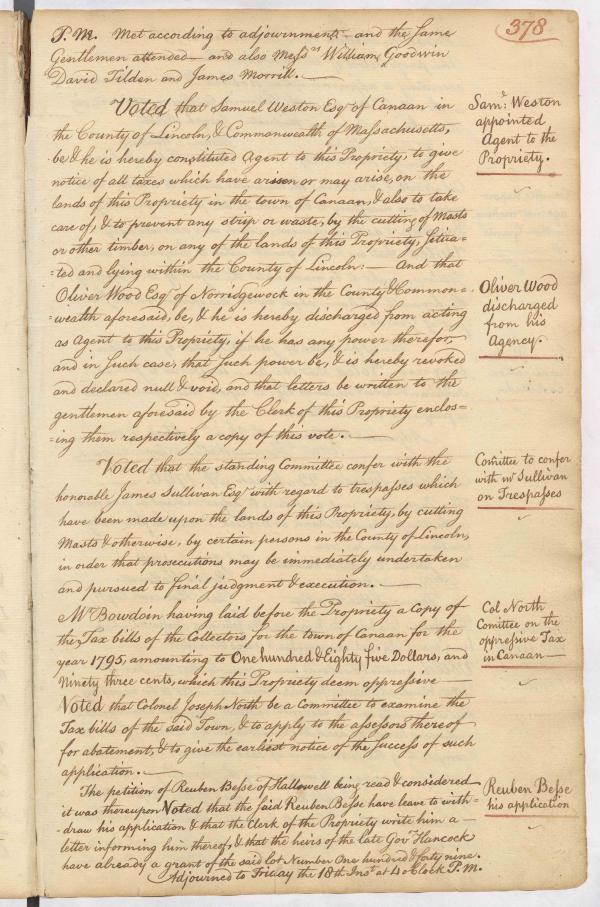 378
P.M. Met according to adjournment, and the same
Gentlemen attended — and also Mess.rs William Goodwin
David Tilden and James Morrill. —
Voted that Samuel Weston Esq.r of Canaan in
the County of Lincoln, & Commonwealth of Massachusetts,
be & he is hereby constituted Agent to this Propriety, to give
notice of all taxes which have arisen or may arise, on the
lands of this Propriety in the town of Canaan, & also to take
care of, & to prevent any strip or waste, by the cutting of Masts
or other timber, on any of the lands of this Propriety, situa-
-ted and lying within the County of Lincoln: — And that
Oliver Wood Esq.r of Norridgewock in the County & Common-
-wealth aforesaid, be, & he is hereby discharged from acting
as Agent to this Propriety, if he has any power therefor,
and in such case, that such power be, & is hereby revoked
and declared null & void, and that letters be written to the
gentlemen aforesaid by the Clerk of this Propriety enclos-
-ing them respectively a copy of this vote. —
Sam.l Weston
appointed
Agent to the
Propriety.
Oliver Wood
discharged
from his
Agency.
Voted that the standing Committee confer with the
honorable James Sullivan Esq.r with regard to trespasses which
have been made upon the lands of this Propriety, by cutting
Masts & otherwise, by certain persons in the County of Lincoln,
in order that prosecutions may be immediately undertaken
and pursued to final judgment & execution. —
Comittee to confer
with mr Sullivan
on Trespasses
Mr Bowdoin having laid before the Propriety a Copy of
the Tax bills of the Collectors for the town of Canaan for the
year 1795, amounting to One hundred & Eighty five Dollars, and
Ninety three cents, which this Propriety deem oppressive —
Voted that Colonel Joseph North be a Committee to examine the
Tax bills of the said Town, & to apply to the assessors thereof
for abatement, & to give the earliest notice of the success of such
application. —
Col North
Comittee on the
oppressive Tax
in Canaan —
The petition of Reuben Besse of Hallowell being read & considered
it was thereupon Voted that the said Reuben Besse have leave to with-
-draw his application & that the Clerk of the Propriety write him a
letter informing him thereof, & that the heirs of the late Gov.r Hancock
have already a grant of the said lot Number One hundred & forty nine.
Adjourned to Friday the 18th Inst at 4 oClock P.M.
Reuben Besse
his application